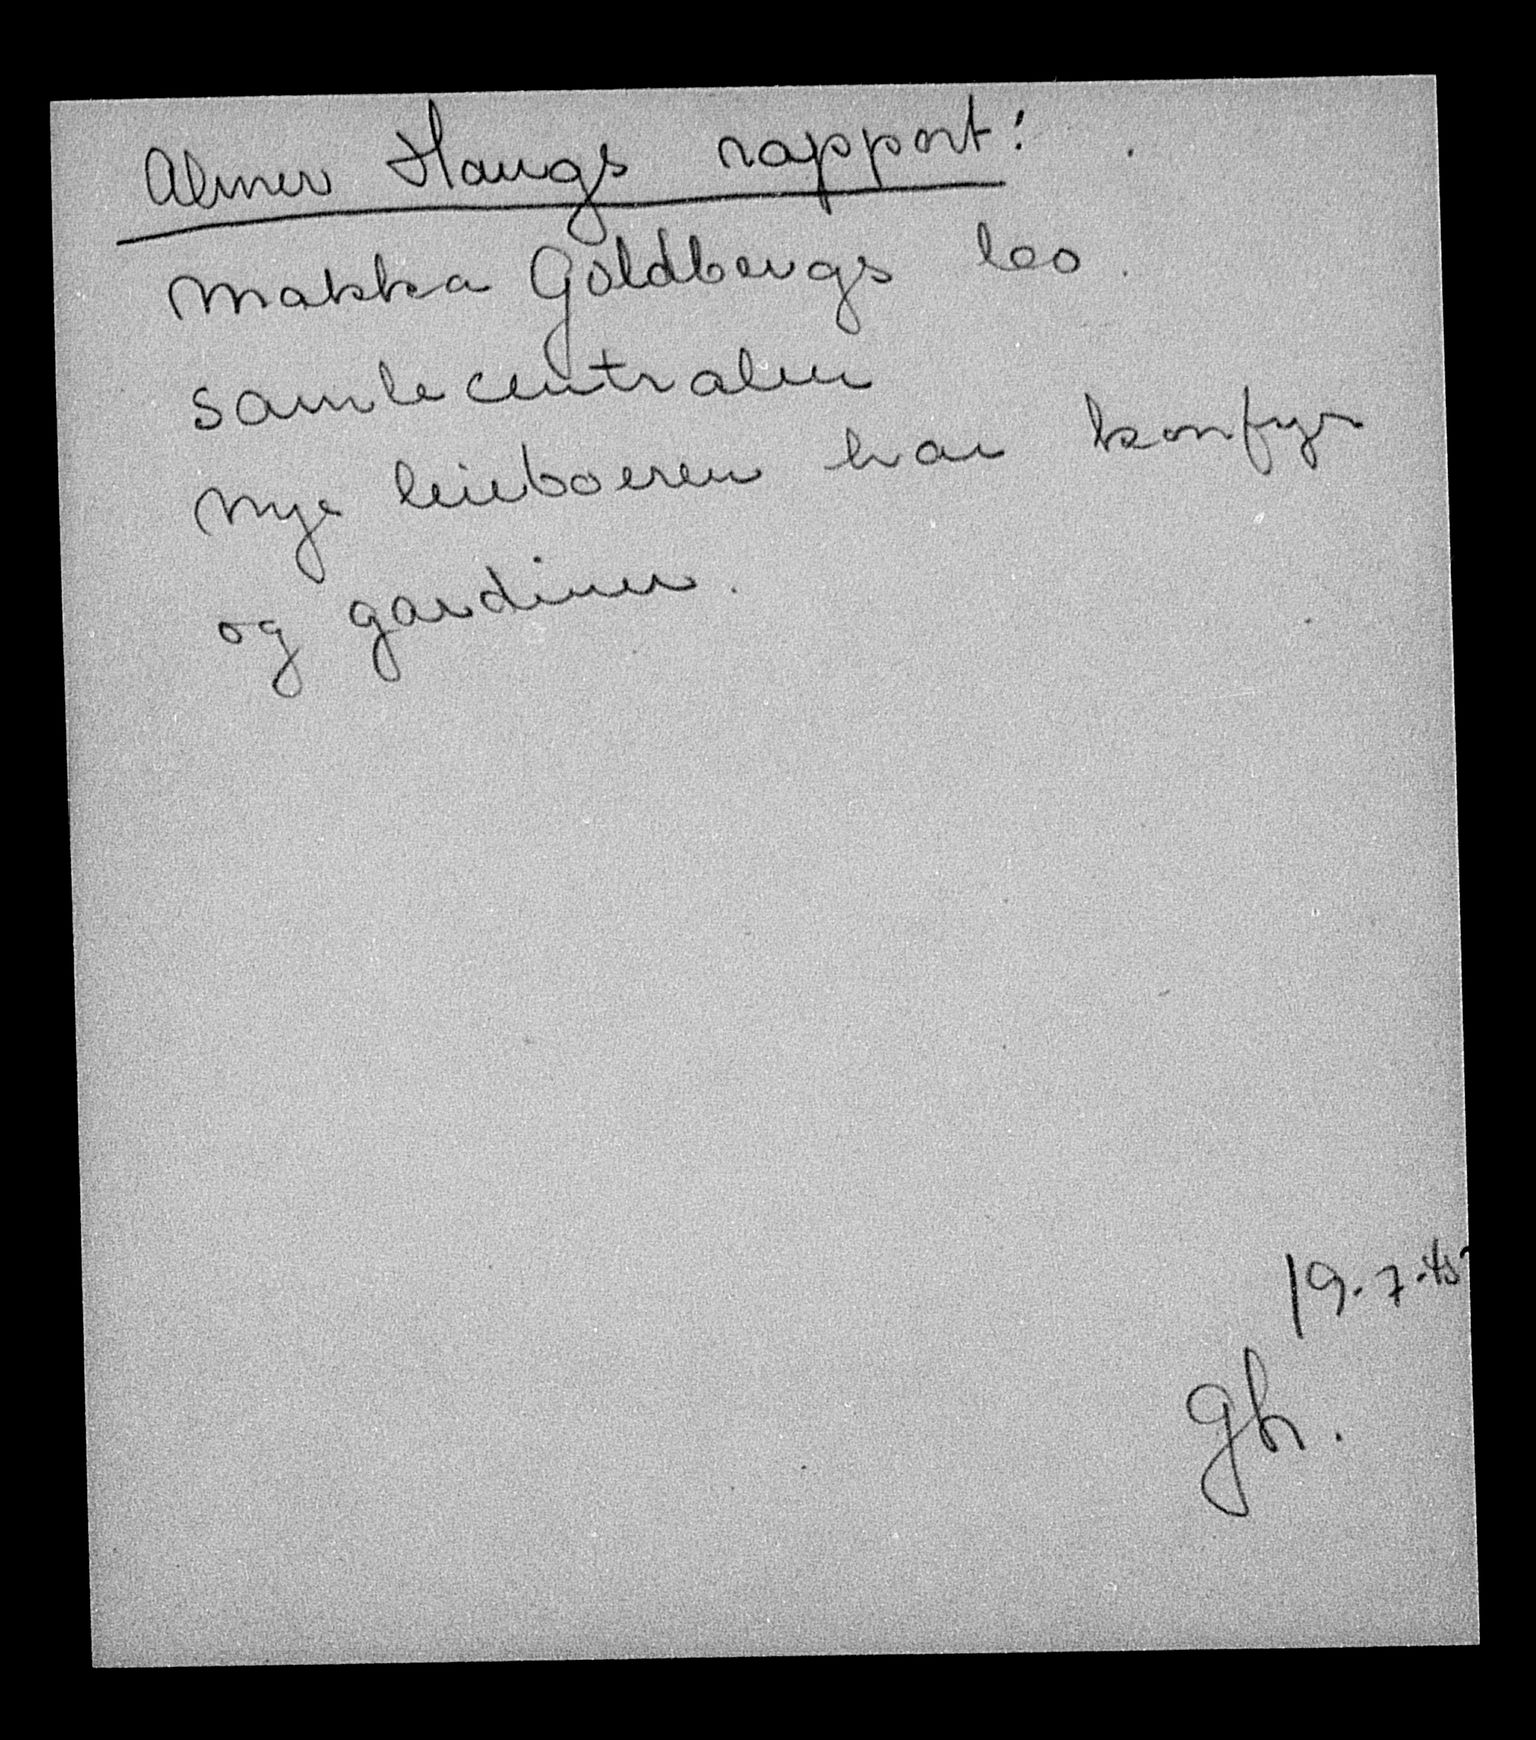 Almer Haugs rapport:
Makka Goldbergs leo.
samlecentralen
Nye leieboeren har komfyr
og gardiner.
19.7.45
Gh.